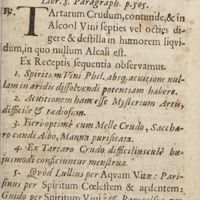 Libr. 8. Paragraph. p. 505.
℞. TArtarum Crudum, contunde, & in
Alcool Vini septies vel octies di-
gere & destilla in humorem liqui-
dum, in quo nullum Alcali est.
Ex Receptis sequentia observamus.
1. Spiritum Vini Phil. absq; acutione nul-
lam in aridis dissolvendi potentiam habere.
2. Acutionem hanc esse Mysterium Artis,
difficile & tædiosum.
3. Fieri optimè cum Melle Crudo, Saccha-
ro candi Albo, Manna purificata.
4. Ex Tartaro Crudo difficiliusculè hu-
jusmodi conficiuntur menstrua.
5. Quòd Lullius per Aquam Vitæ: Pari-
sinus per Spiritum Cœlestem & ardentem:
Guido per Spiritum Vini